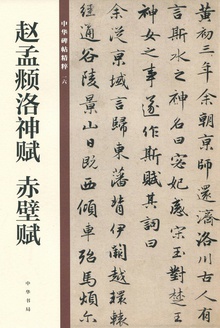 赵孟頫洛神赋 赤壁赋
中华碑帖精粹 一六
中华书局
黄初三年余朝京師還濟洛川古人有
言斯水之神名曰宓妃感宋玉對楚王
神女之事遂作斯賦其詞曰
余從京域言歸東藩背伊闕越轘轅
經通谷陵景山日既西傾車殆馬煩尔